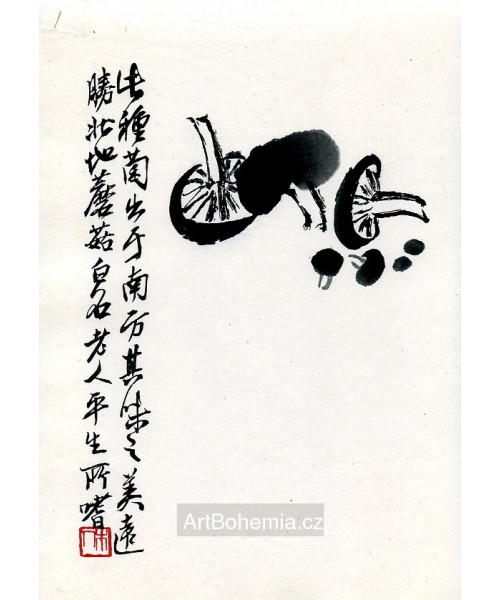 此種菌出于南方其味之美遠
勝北地蘑菇白石老人平生所嗜
ArtBohemia.cz